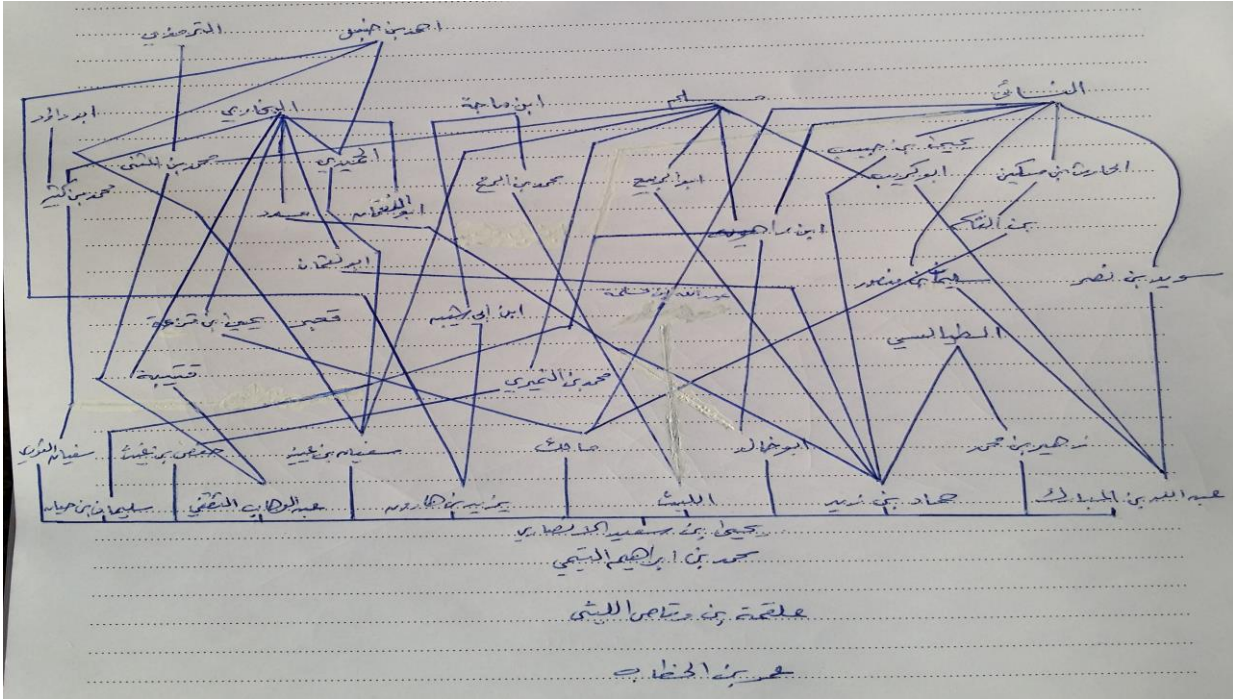 الترمذي احمد بن حنبل
ابو داود البخاري ابن ماجة مسلم النسائي
محمد بن كثير محمد بن المثنى الحميدي محمد بن الرمح ابو الربيع يحيى بن حبيب ابو كريب الحارث بن مسكين
مسدد ابو النعمان ابن راهويه بن القاسم
ابو نعمان منصور سويد بن نصر
يحيى بن قزعة ابن ابي شيبه عبدالله بن مسلمة الطيالسي
قتيبة محمد بن النميري
سفيان الثوري حفص بن غياث سفيان بن عيينه مالك ابو خالد زهير بن محمد
سليمان بن حيان عبد الوهاب الثقفي يزيد بن هارون الليث حماد بن زيد عبد الله بن المبارك
يحيى بن سعيد الانصاري
محمد بن ابراهيم التيمي
علقمة بن وقاص الليثي
عمر بن الخطاب